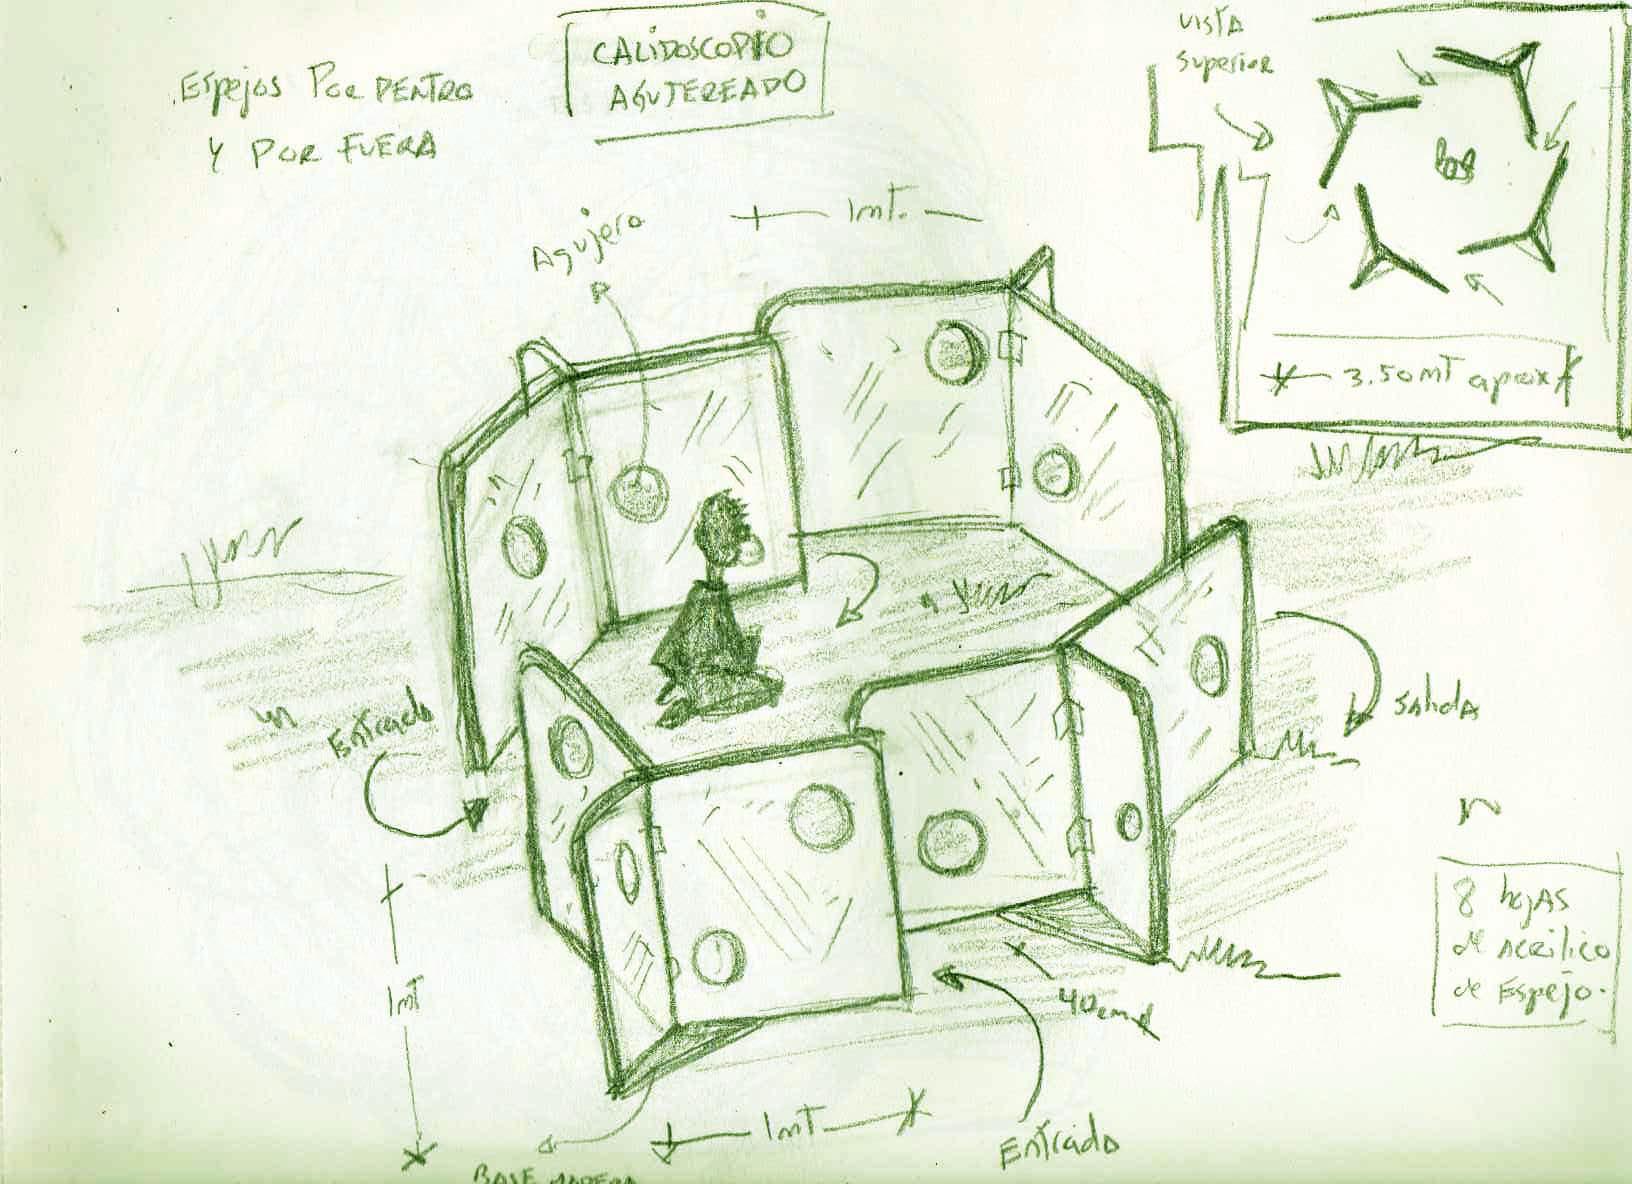 Espejos Por DENTRO
Y POR FUERA
CALIDOSCOPIO
AGUJEREADO
VISTA
Superior
3.50 MT aprox
1mt.
Agujero
Entrada
Salida
8 hojas
de Acrilico
de Espejo.
1mt
40cm
1mt
Entrada
BASE MADERA